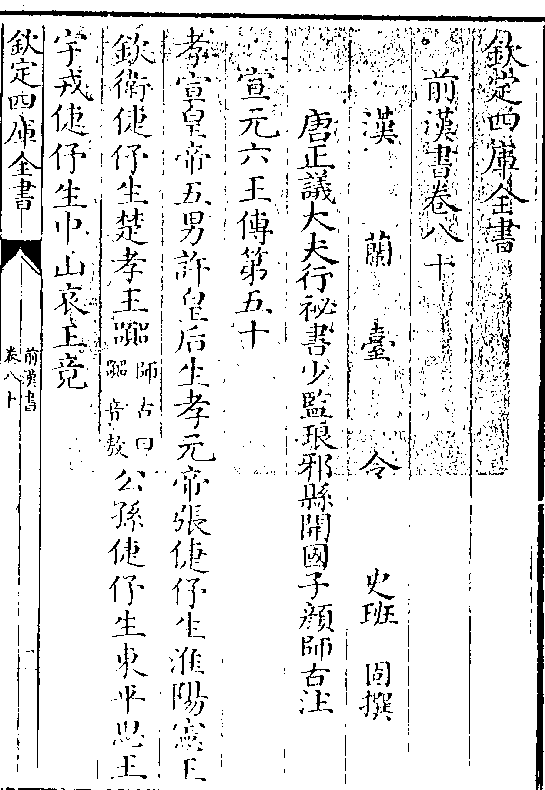 欽定四庫全書
前漢書卷八十
漢蘭臺令史班固撰
唐正議大夫行祕書少監琅邪縣開國子顔師古注
宣元六王傳第五十
孝宣皇帝五男許皇后生孝元帝張倢伃生淮陽憲王
欽衛倢伃生楚孝王嚻師古曰嚻音敖公孫倢伃生東平思王
宇戎倢伃生中山哀王竟
欽定四庫全書
前漢書
卷八十
一